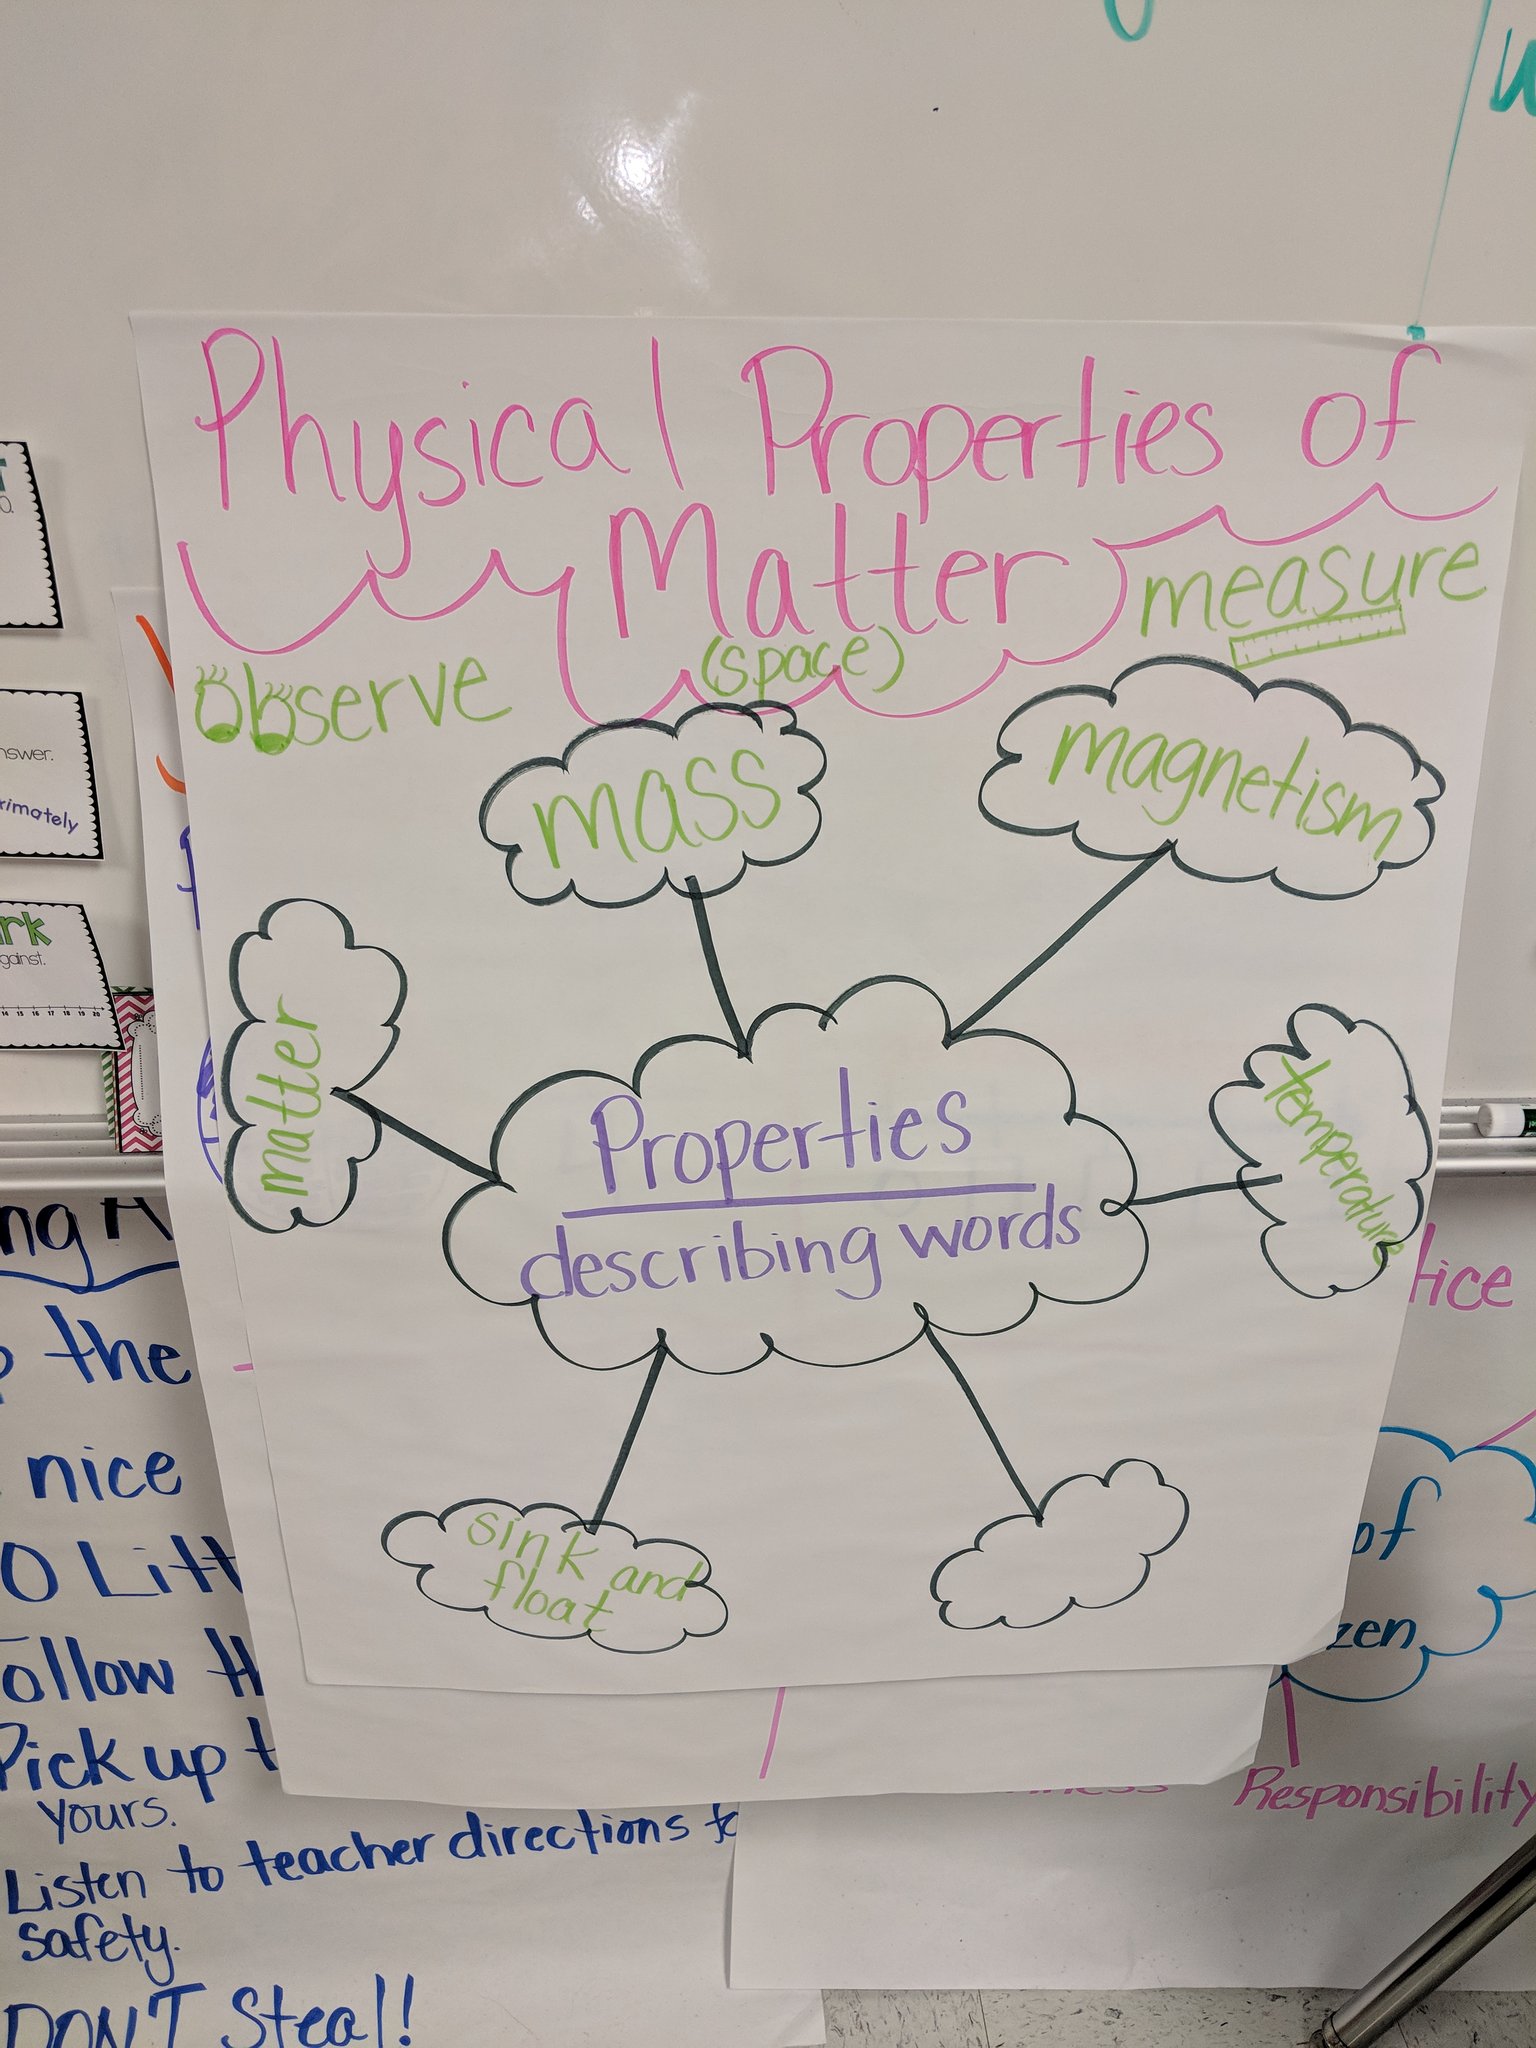 Physical Properties of
Matter
observe
(space)
measure
mass
magnetism
matter
temperature
Properties
describing words
sink and
float
nswer.
rimately
rk
gainst.
14 15 16 17 18 19 20
ng A
the
nice
O Litt
ollow th
Pick up t
yours.
Listen to teacher directions fo
safety.
DON'T Steal!
tice
of
zen
Responsibility